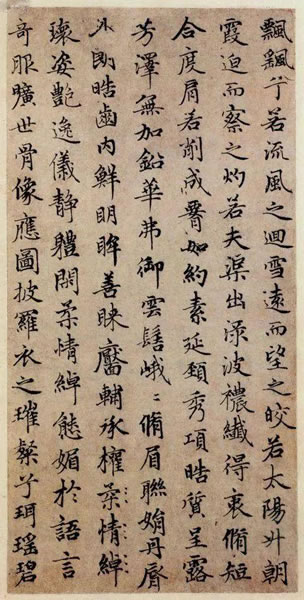 飄飖兮若流風之迴雪遠而望之皎若太陽升朝
霞迫而察之灼若夫渠出渌波穠纖得衷脩短
合度肩若削成腰如約素延頸秀項皓質呈露
芳澤無加鉛華弗御雲髻峨〻脩眉聯娟丹脣
外朗皓齒內鮮明眸善睞靨輔承權柔情綽
瓌姿艷逸儀靜體閑柔情綽態媚於語言
奇服曠世骨像應圖披羅衣之璀粲兮珥瑤碧